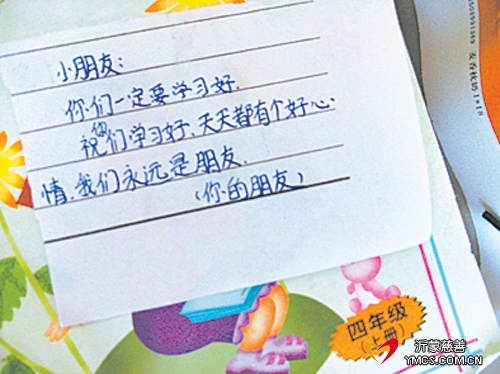 小朋友：
你们一定要学习好.
祝你们学习好、天天都有个好心
情，我们永远是朋友.
（你的朋友）
四年级
上册
沂蒙慈善
YMCS.COM.CN